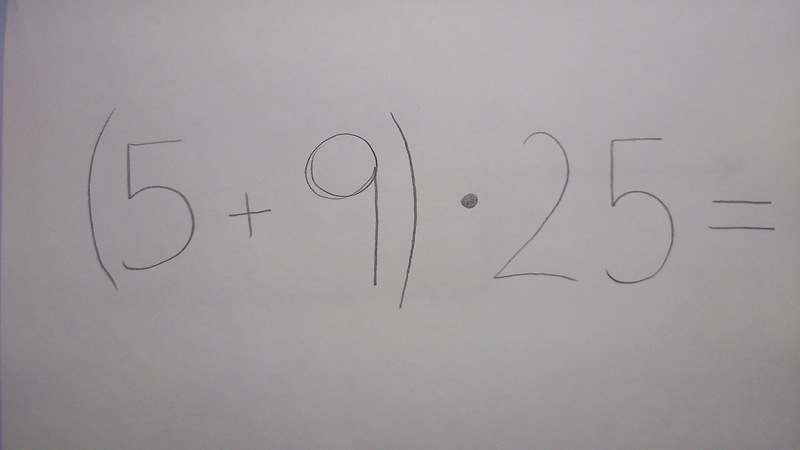 (5 + 9) · 25 =